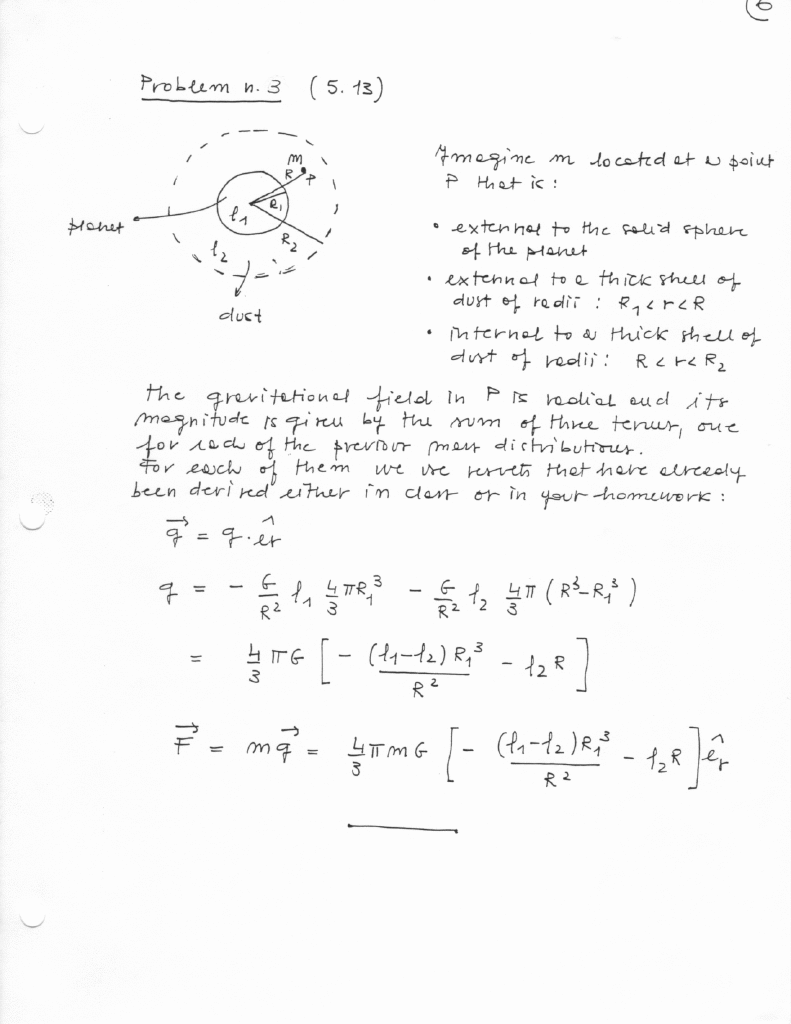 6
Problem n. 3 (5.13)
m
R P
R₁
ρ₁
planet
R₂
ρ₂
dust
Imagine m located at a point
P that is :
• external to the solid sphere
of the planet
• external to a thick shell of
dust of radii : R₁ < r < R
• internal to a thick shell of
dust of radii : R < r < R₂
The gravitational field in P is radial and its
magnitude is given by the sum of three terms, one
for each of the previous mass distributions.
For each of them we use results that have already
been derived either in class or in your homework :
g⃗ = g · ê_r
g = - G/R² ρ₁ 4/3 πR₁³ - G/R² ρ₂ 4/3 π (R³-R₁³)
= 4/3 πG [ - (ρ₁-ρ₂) R₁³/R² - ρ₂R ]
F⃗ = mg⃗ = 4/3 πmG [ - (ρ₁-ρ₂)R₁³/R² - ρ₂R ] ê_r